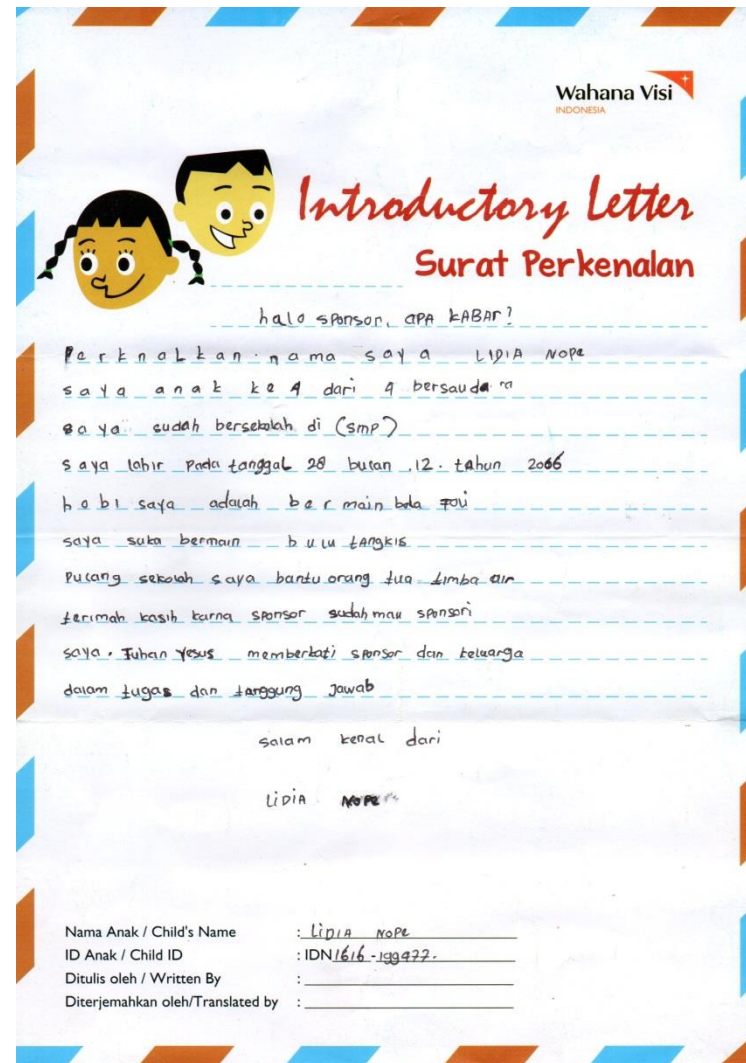 Wahana Visi
INDONESIA
Introductory Letter
Surat Perkenalan
halo sponsor, apa KABAr?
Perknalkan nama saya LIDIA NOPE
saya anak ke 4 dari 4 bersaudara
saya sudah bersekolah di (smp)
saya lahir pada tanggal 28 bulan .12. tahun 2006
hobi saya adalah bermain bola foli
saya suka bermain bulu tangkis
pulang sekolah saya bantu orang tua timba air
terimah kasih karna sponsor sudah mau sponsori
saya. Tuhan Yesus memberkati sponsor dan keluarga
dalam tugas dan tanggung jawab
salam kenal dari
LiDiA NOPE
Nama Anak / Child's Name : LiDIA NOPE
ID Anak / Child ID : IDN1616-199477.
Ditulis oleh / Written By :
Diterjemahkan oleh/Translated by :